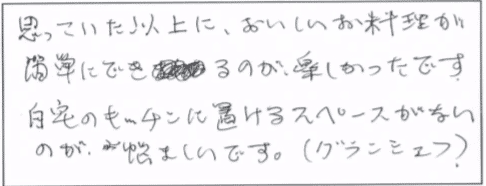 思っていた以上に、おいしいお料理が
簡単にできるのが、楽しかったです
自宅のキッチンに置けるスペースがない
のが、悩ましいです。(グランシェフ)